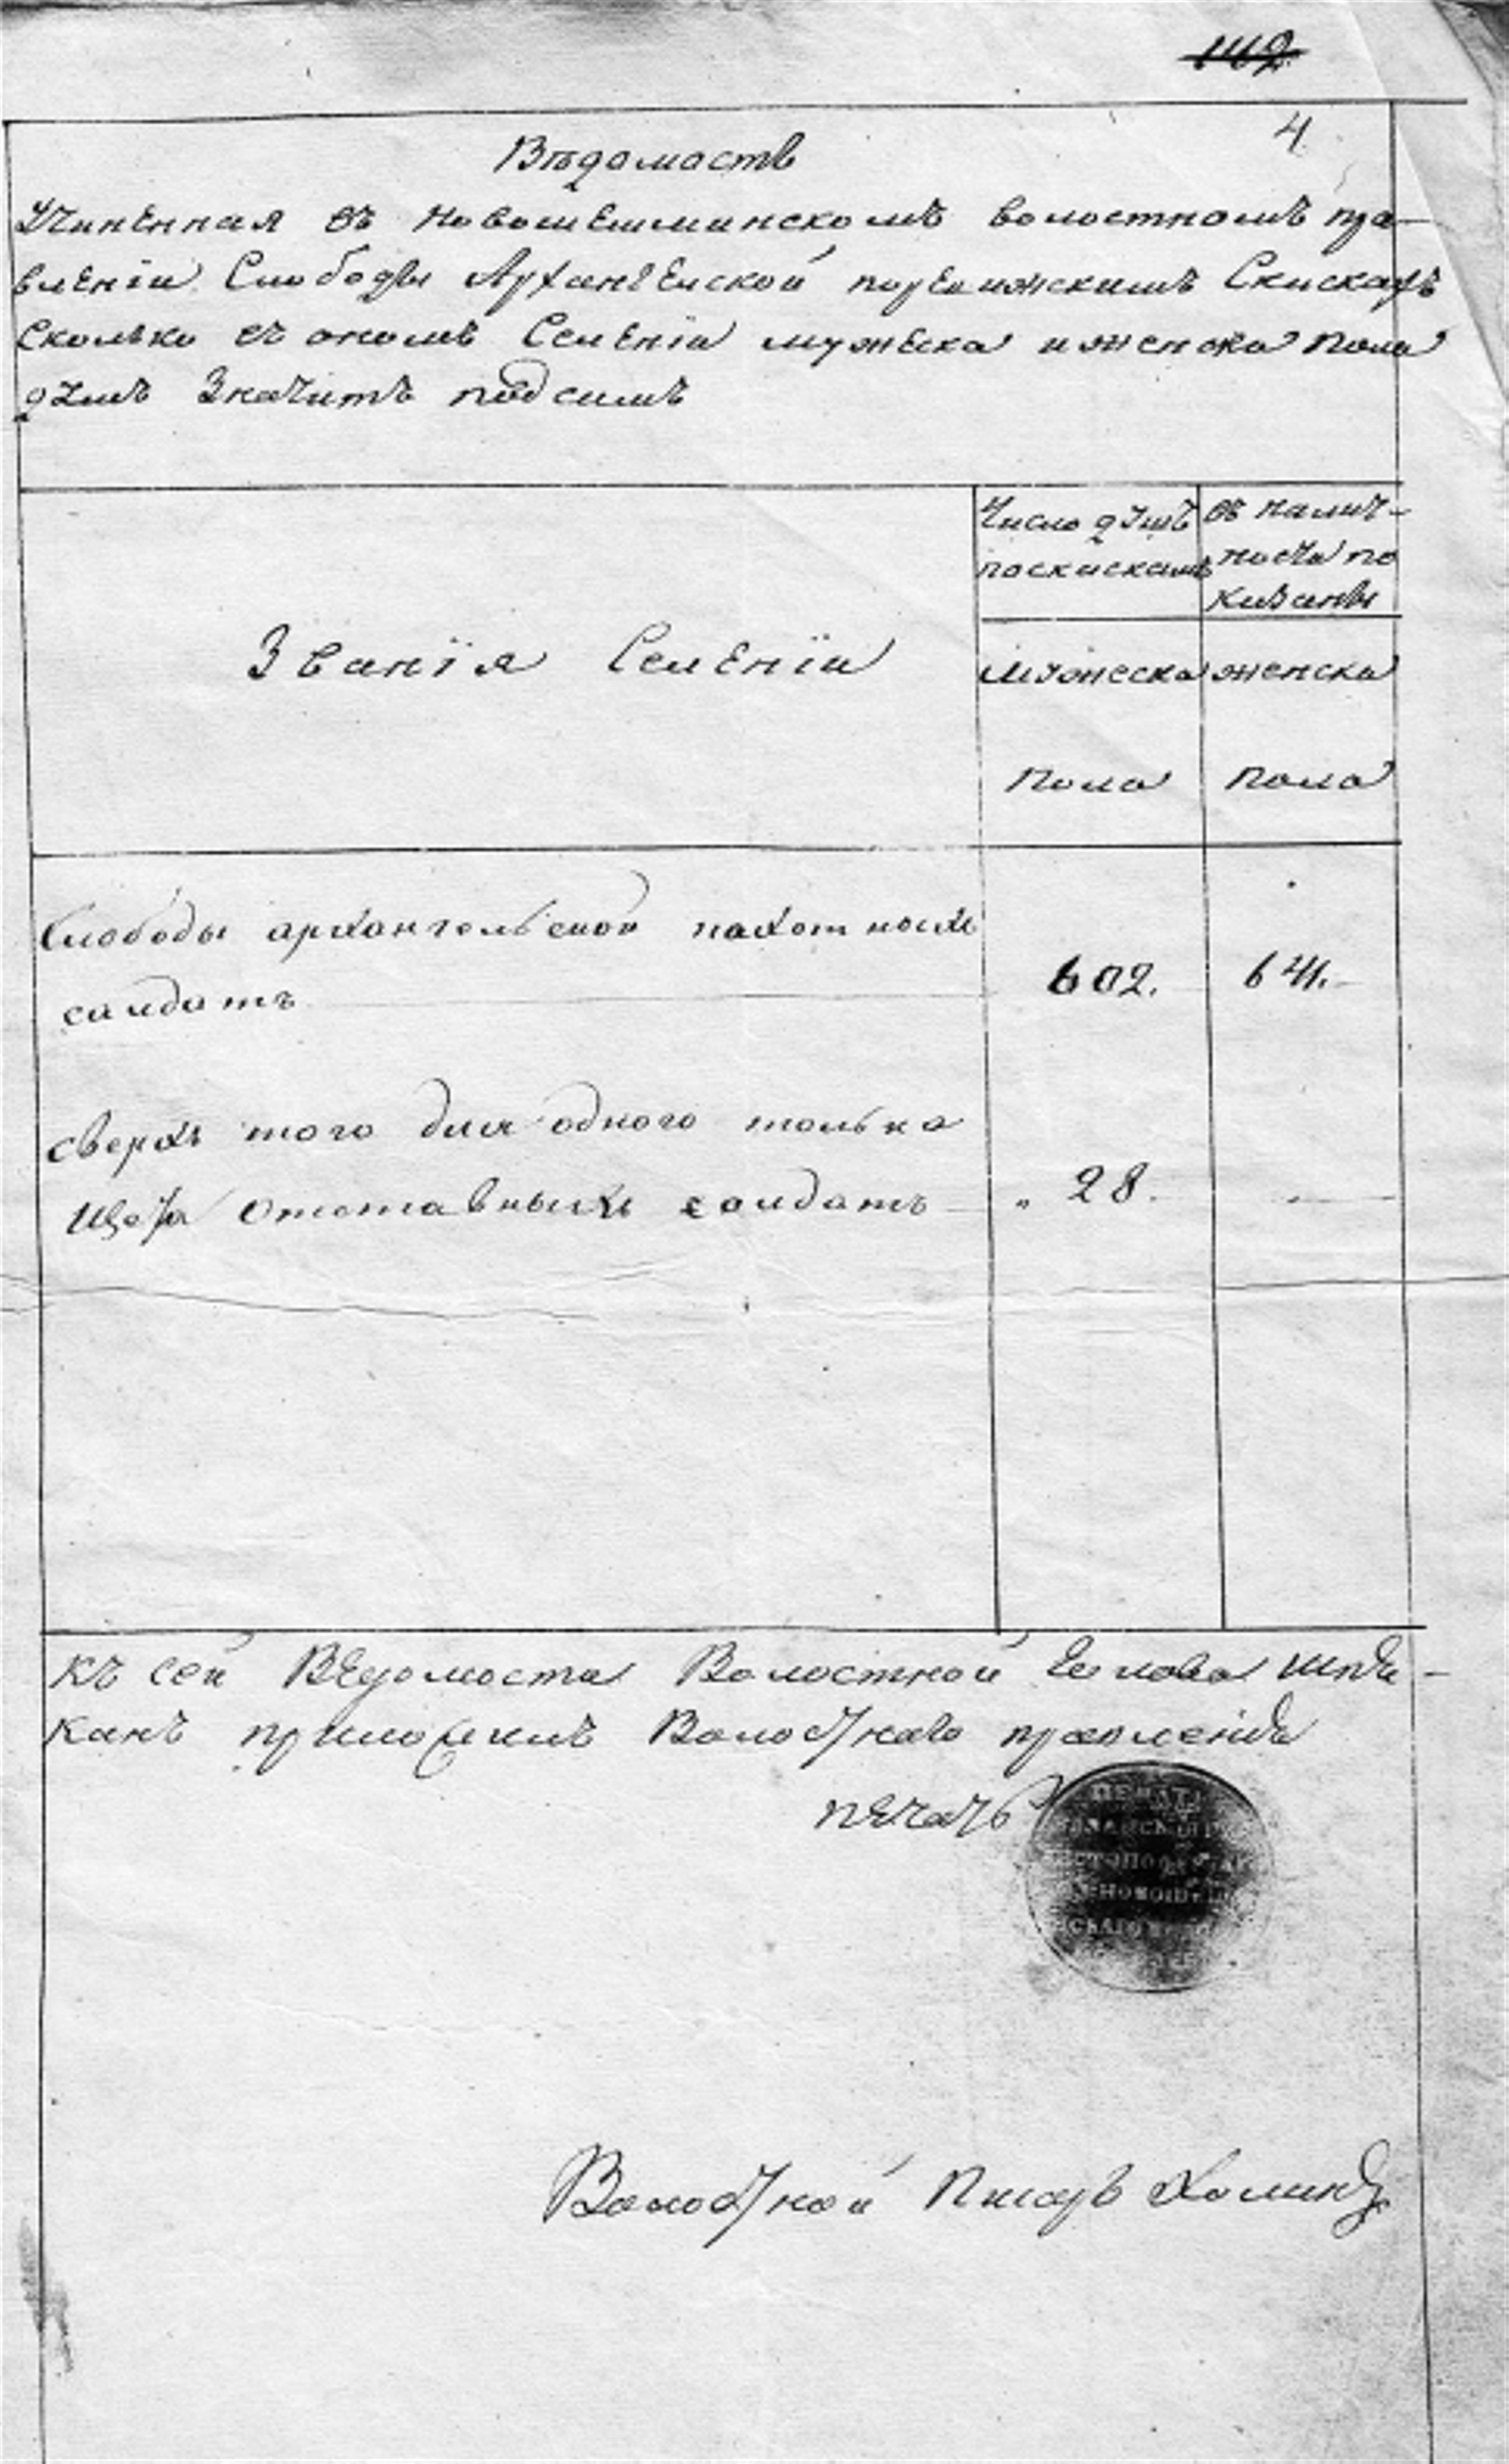 142
4
Вѣдомость
Учиненная въ Новошешминскомъ волостномъ пра-
вленіи Слободы Архангелской по ревижскимъ Скискамъ
Сколько въ ономъ Селеніи мужеска и женска пола
душъ Значитъ под симъ
Число душъ
по скискамъ
въ налич-
ности по
казаны
Званія Селеніи
мужеска
женска
пола
пола
Слободы архангельской пахотныхъ
салдатъ
602.
641.
сверхъ того для одного только
щета отставныхъ солдатъ
28.
Къ сей Ведомости Волостной Голова
приложилъ Волостнаго правленія
печать
ПЕЧАТЬ
Волостной Писарь